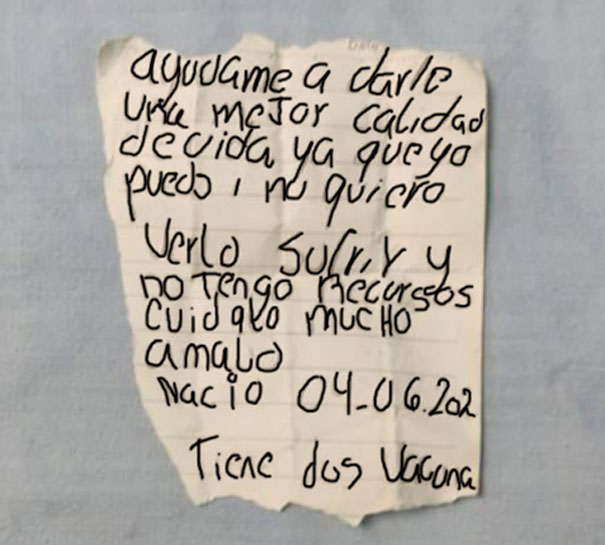 ayudame a darle
una mejor calidad
de vida ya que yo
puedo i no quiero
Verlo Sufrir y
no Tengo Recursos
cuidalo mucHo
amalo
Nacio 04-06.202
Tiene dos Vacuna